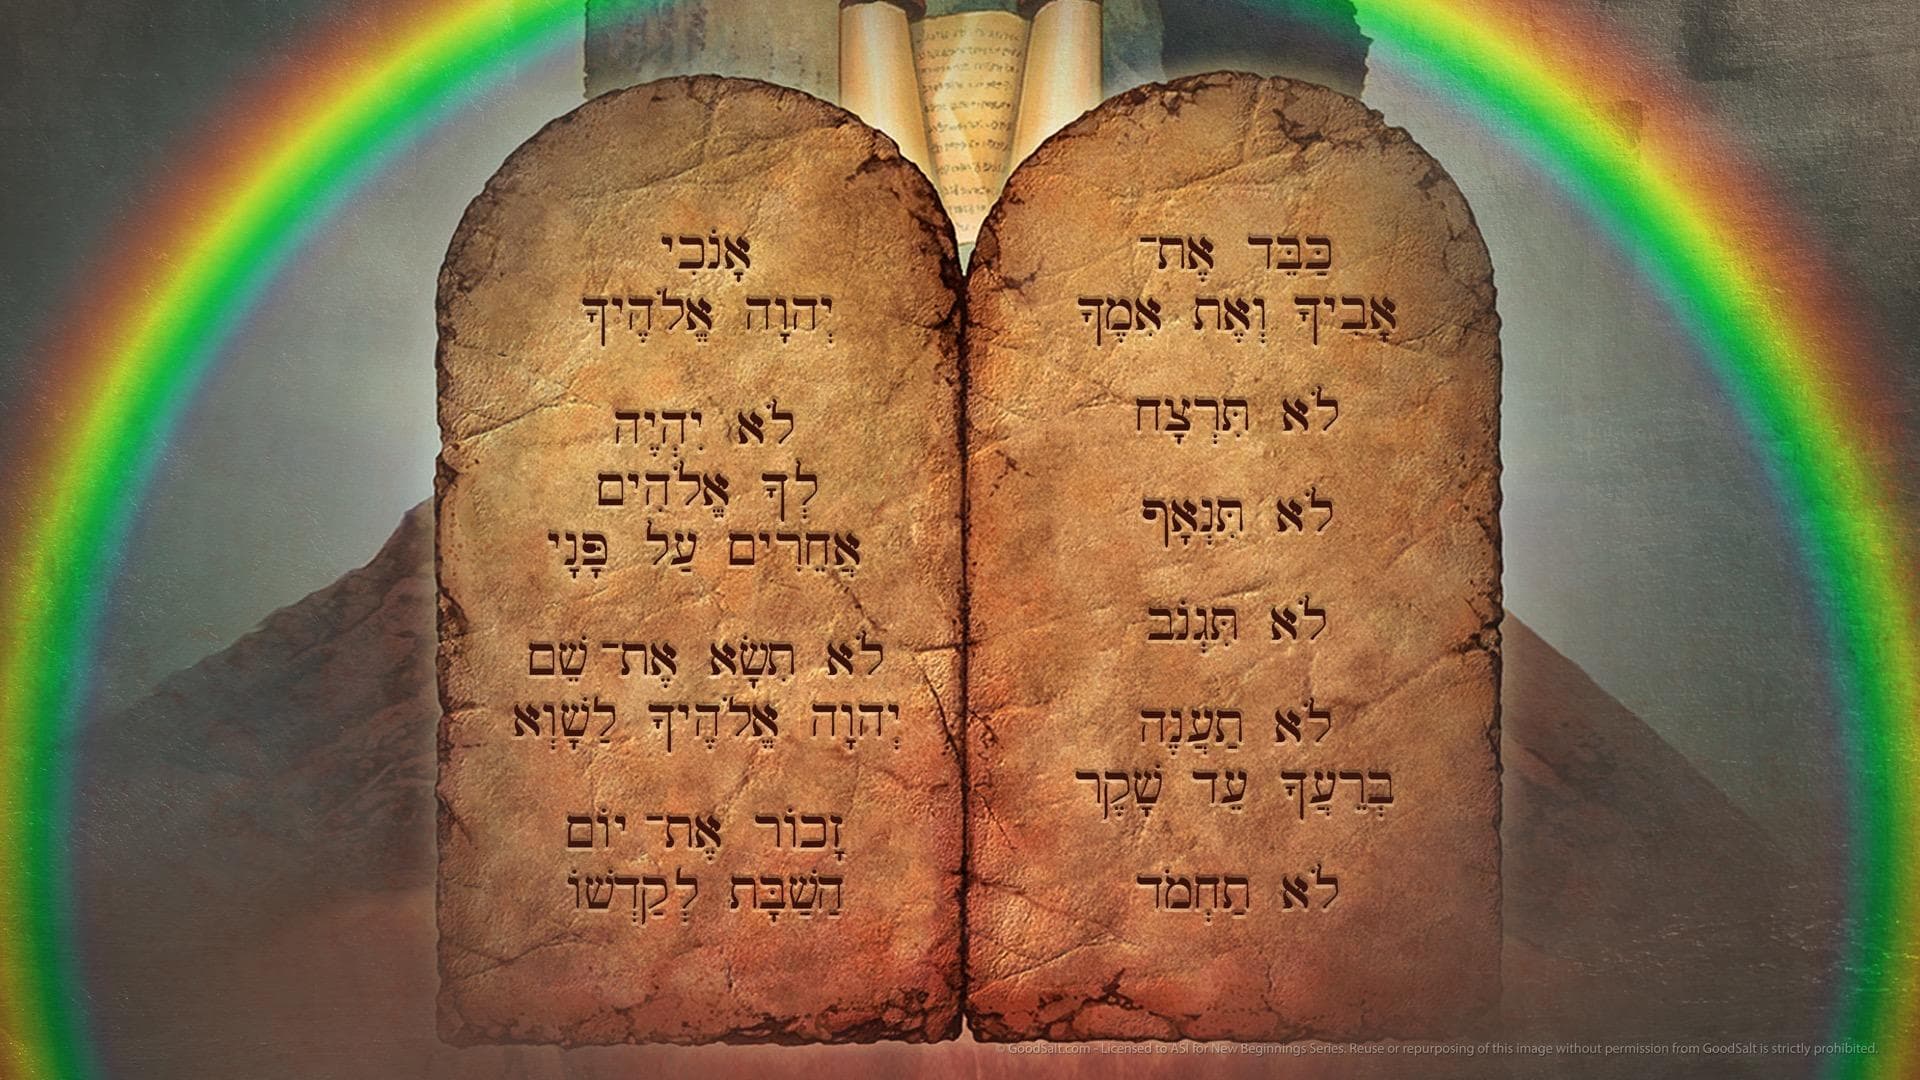 אָנֹכִי
יְהוָה אֱלֹהֶיךָ
לֹא יִהְיֶה
לְךָ אֱלֹהִים
אֲחֵרִים עַל פָּנָי
לֹא תִשָּׂא אֶת־שֵׁם
יְהוָה אֱלֹהֶיךָ לַשָּׁוְא
זָכוֹר אֶת־ יוֹם
הַשַּׁבָּת לְקַדְשׁוֹ
כַּבֵּד אֶת־
אָבִיךָ וְאֶת אִמֶךָ
לֹא תִּרְצָח
לֹא תִּנְאָף
לֹא תִּגְנֹב
לֹא תַעֲנֶה
בְרֵעֲךָ עֵד שָׁקֶר
לֹא תַחְמֹד
© GoodSalt.com - Licensed to ASI for New Beginnings Series. Reuse or repurposing of this image without permission from GoodSalt is strictly prohibited.